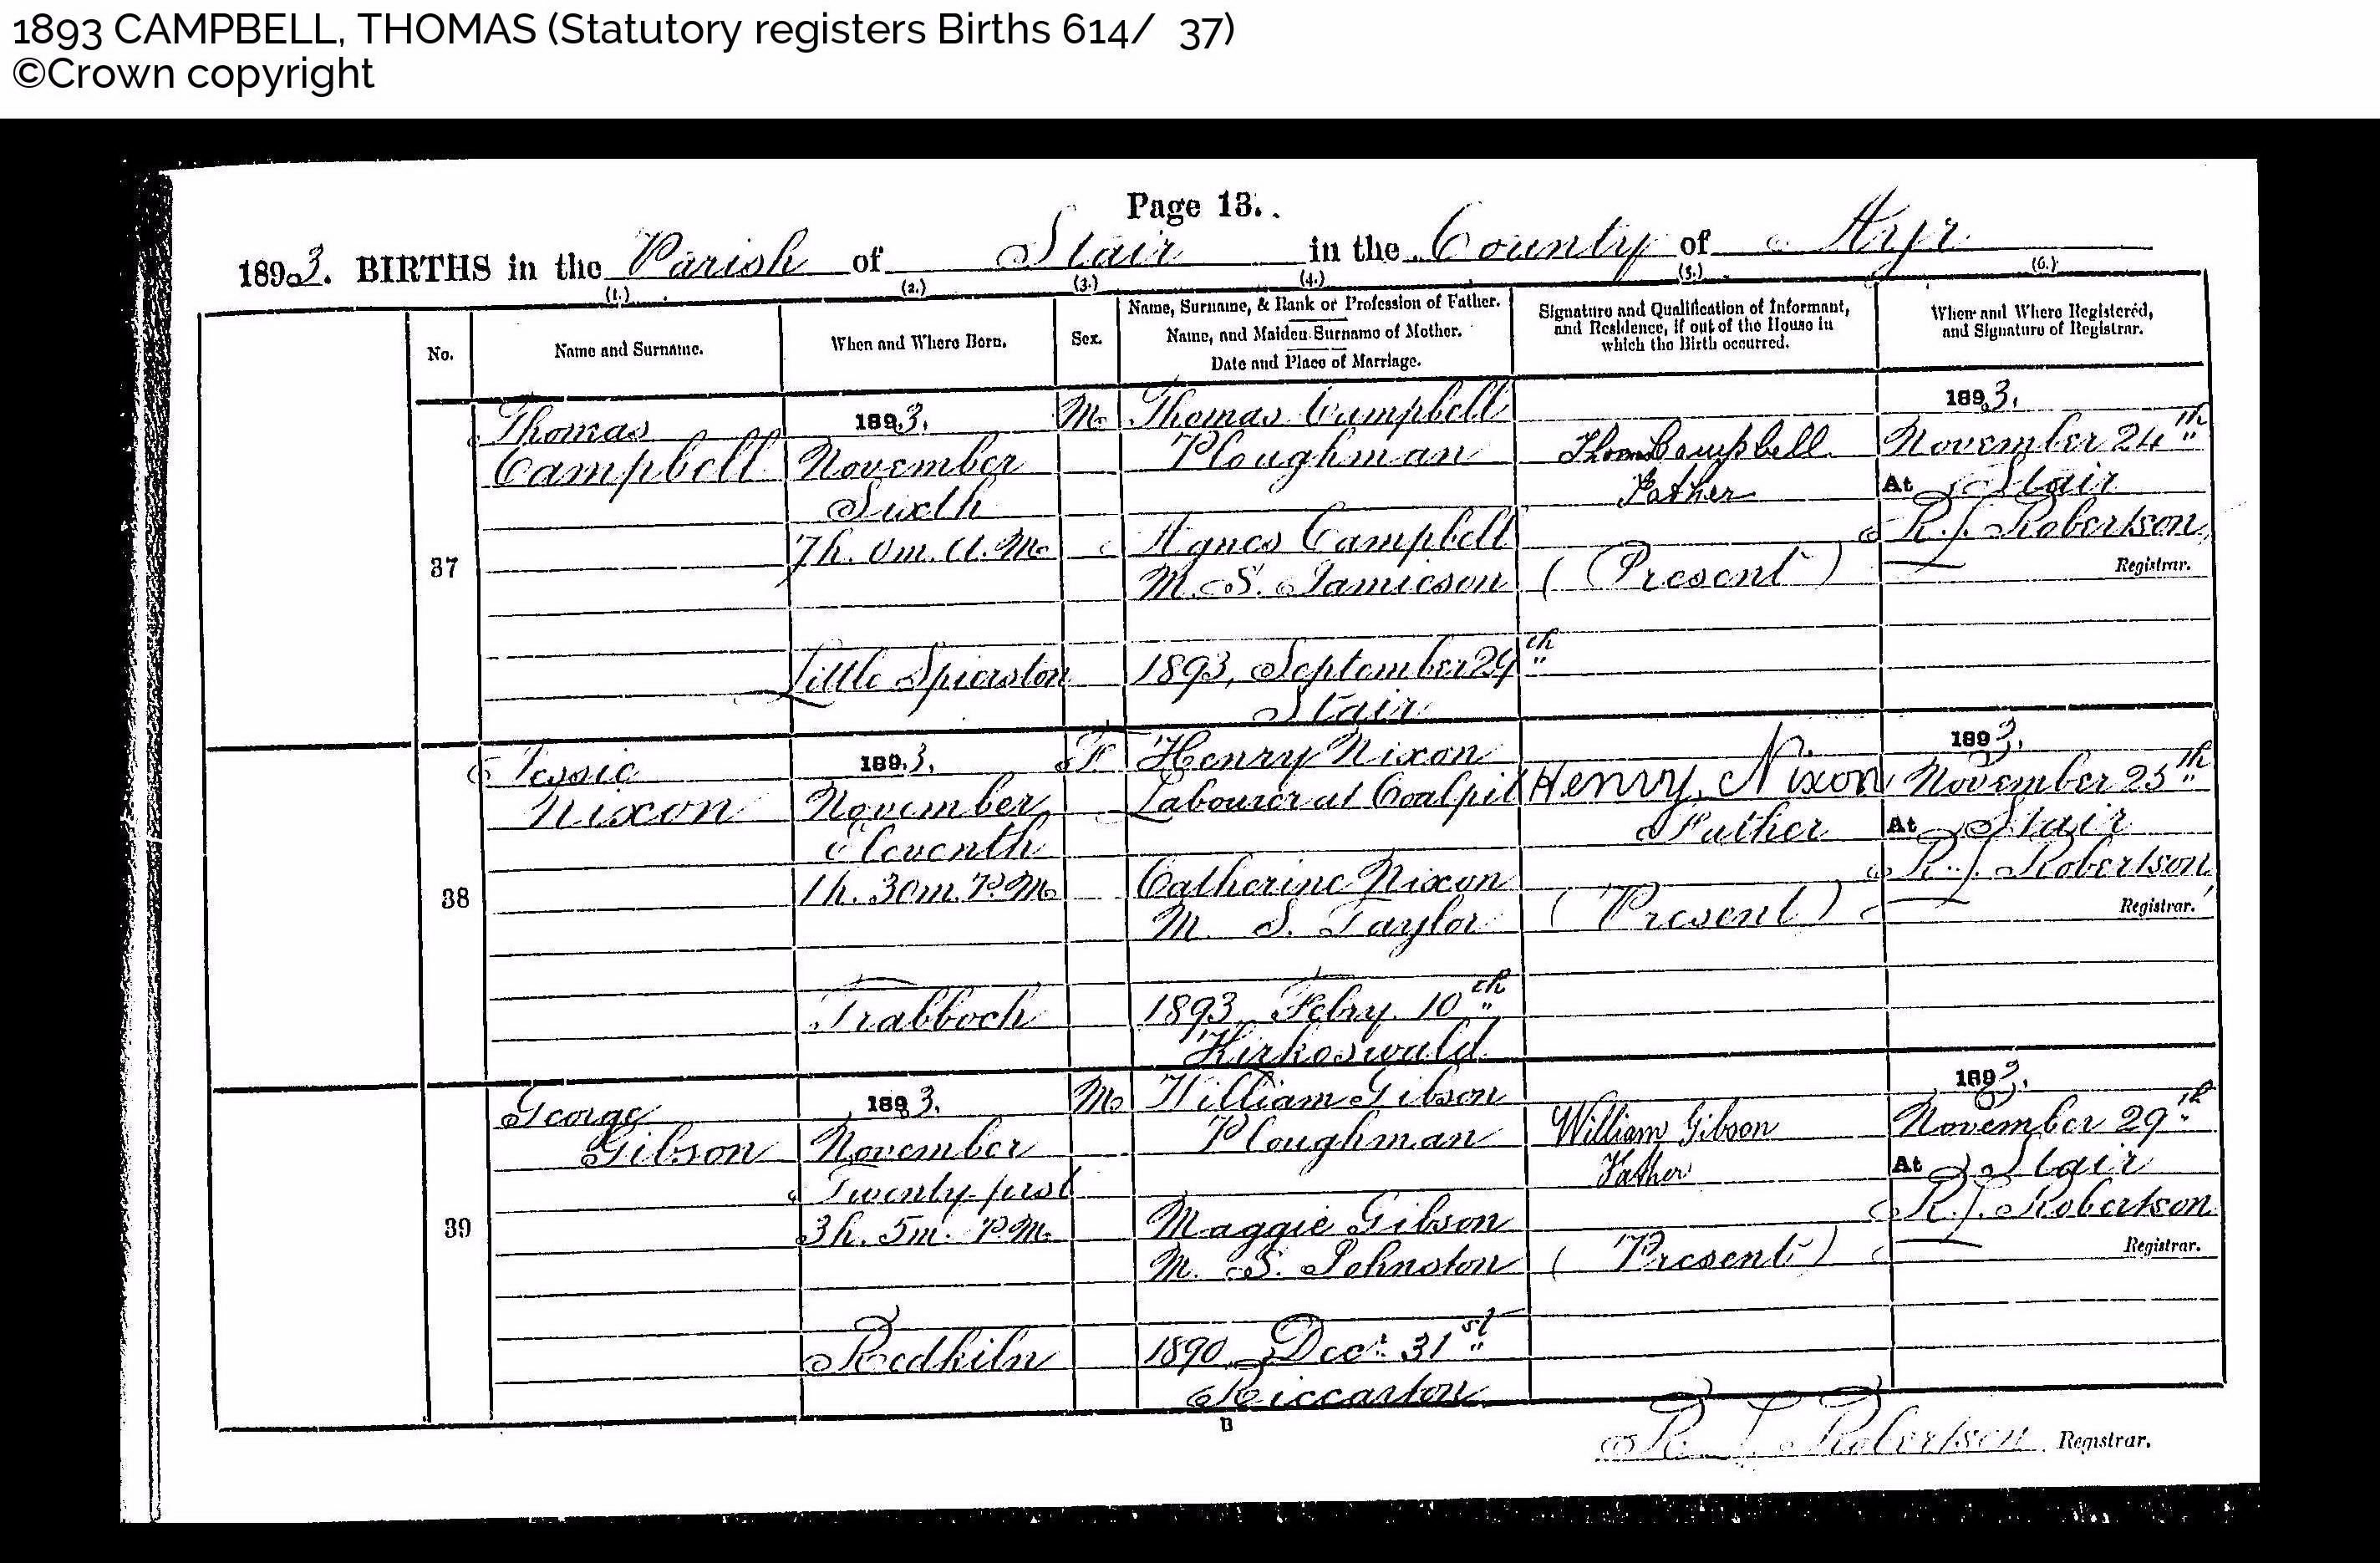 1893 CAMPBELL, THOMAS (Statutory registers Births 614/ 37)
©Crown copyright
Page 13.
1893. BIRTHS in the Parish of Stair in the County of Ayr
(1.) (2.) (3.) (4.) (5.) (6.)
No.
Name and Surname.
When and Where Born.
Sex.
Name, Surname, & Rank or Profession of Father.
Name, and Maiden Surname of Mother.
Date and Place of Marriage.
Signature and Qualification of Informant,
and Residence, if out of the House in
which the Birth occurred.
When and Where Registered,
and Signature of Registrar.
37
Thomas
Campbell
1893.
November
Sixth
7h. 0m. A.M.
Little Spierston
M.
Thomas Campbell
Ploughman
Agnes Campbell
M.S. Jamieson
1893, September 29th
Stair
Thomas Campbell
Father
(Present)
1893.
November 24th
At Stair
R. J. Robertson
Registrar.
38
Jessie
Nixon
1893.
November
Eleventh
1h. 30m. P.M.
Trabboch
F.
Henry Nixon
Labourer at Coalpit
Catherine Nixon
M. S. Taylor
1893, Febry. 10th
Kirkoswald
N.
Henry, Nixon
Father
(Present)
1893.
November 25th
At Stair
R. J. Robertson
Registrar.
39
George
Gibson
1893.
November
Twenty-first
3h. 5m. P.M.
Redkiln
M.
William Gibson
Ploughman
Maggie Gibson
M. S. Johnston
1890, Decr. 31st
Riccarton
William Gibson
Father
(Present)
1893.
November 29th
At Stair
R. J. Robertson
Registrar.
B
R. J. Robertson Registrar.